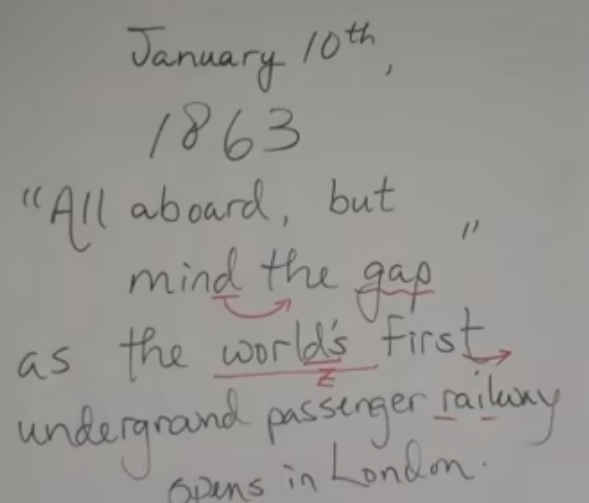 January 10th,
1863
"All aboard, but
mind the gap"
as the world's first
z
undergrand passenger railway
opens in London.